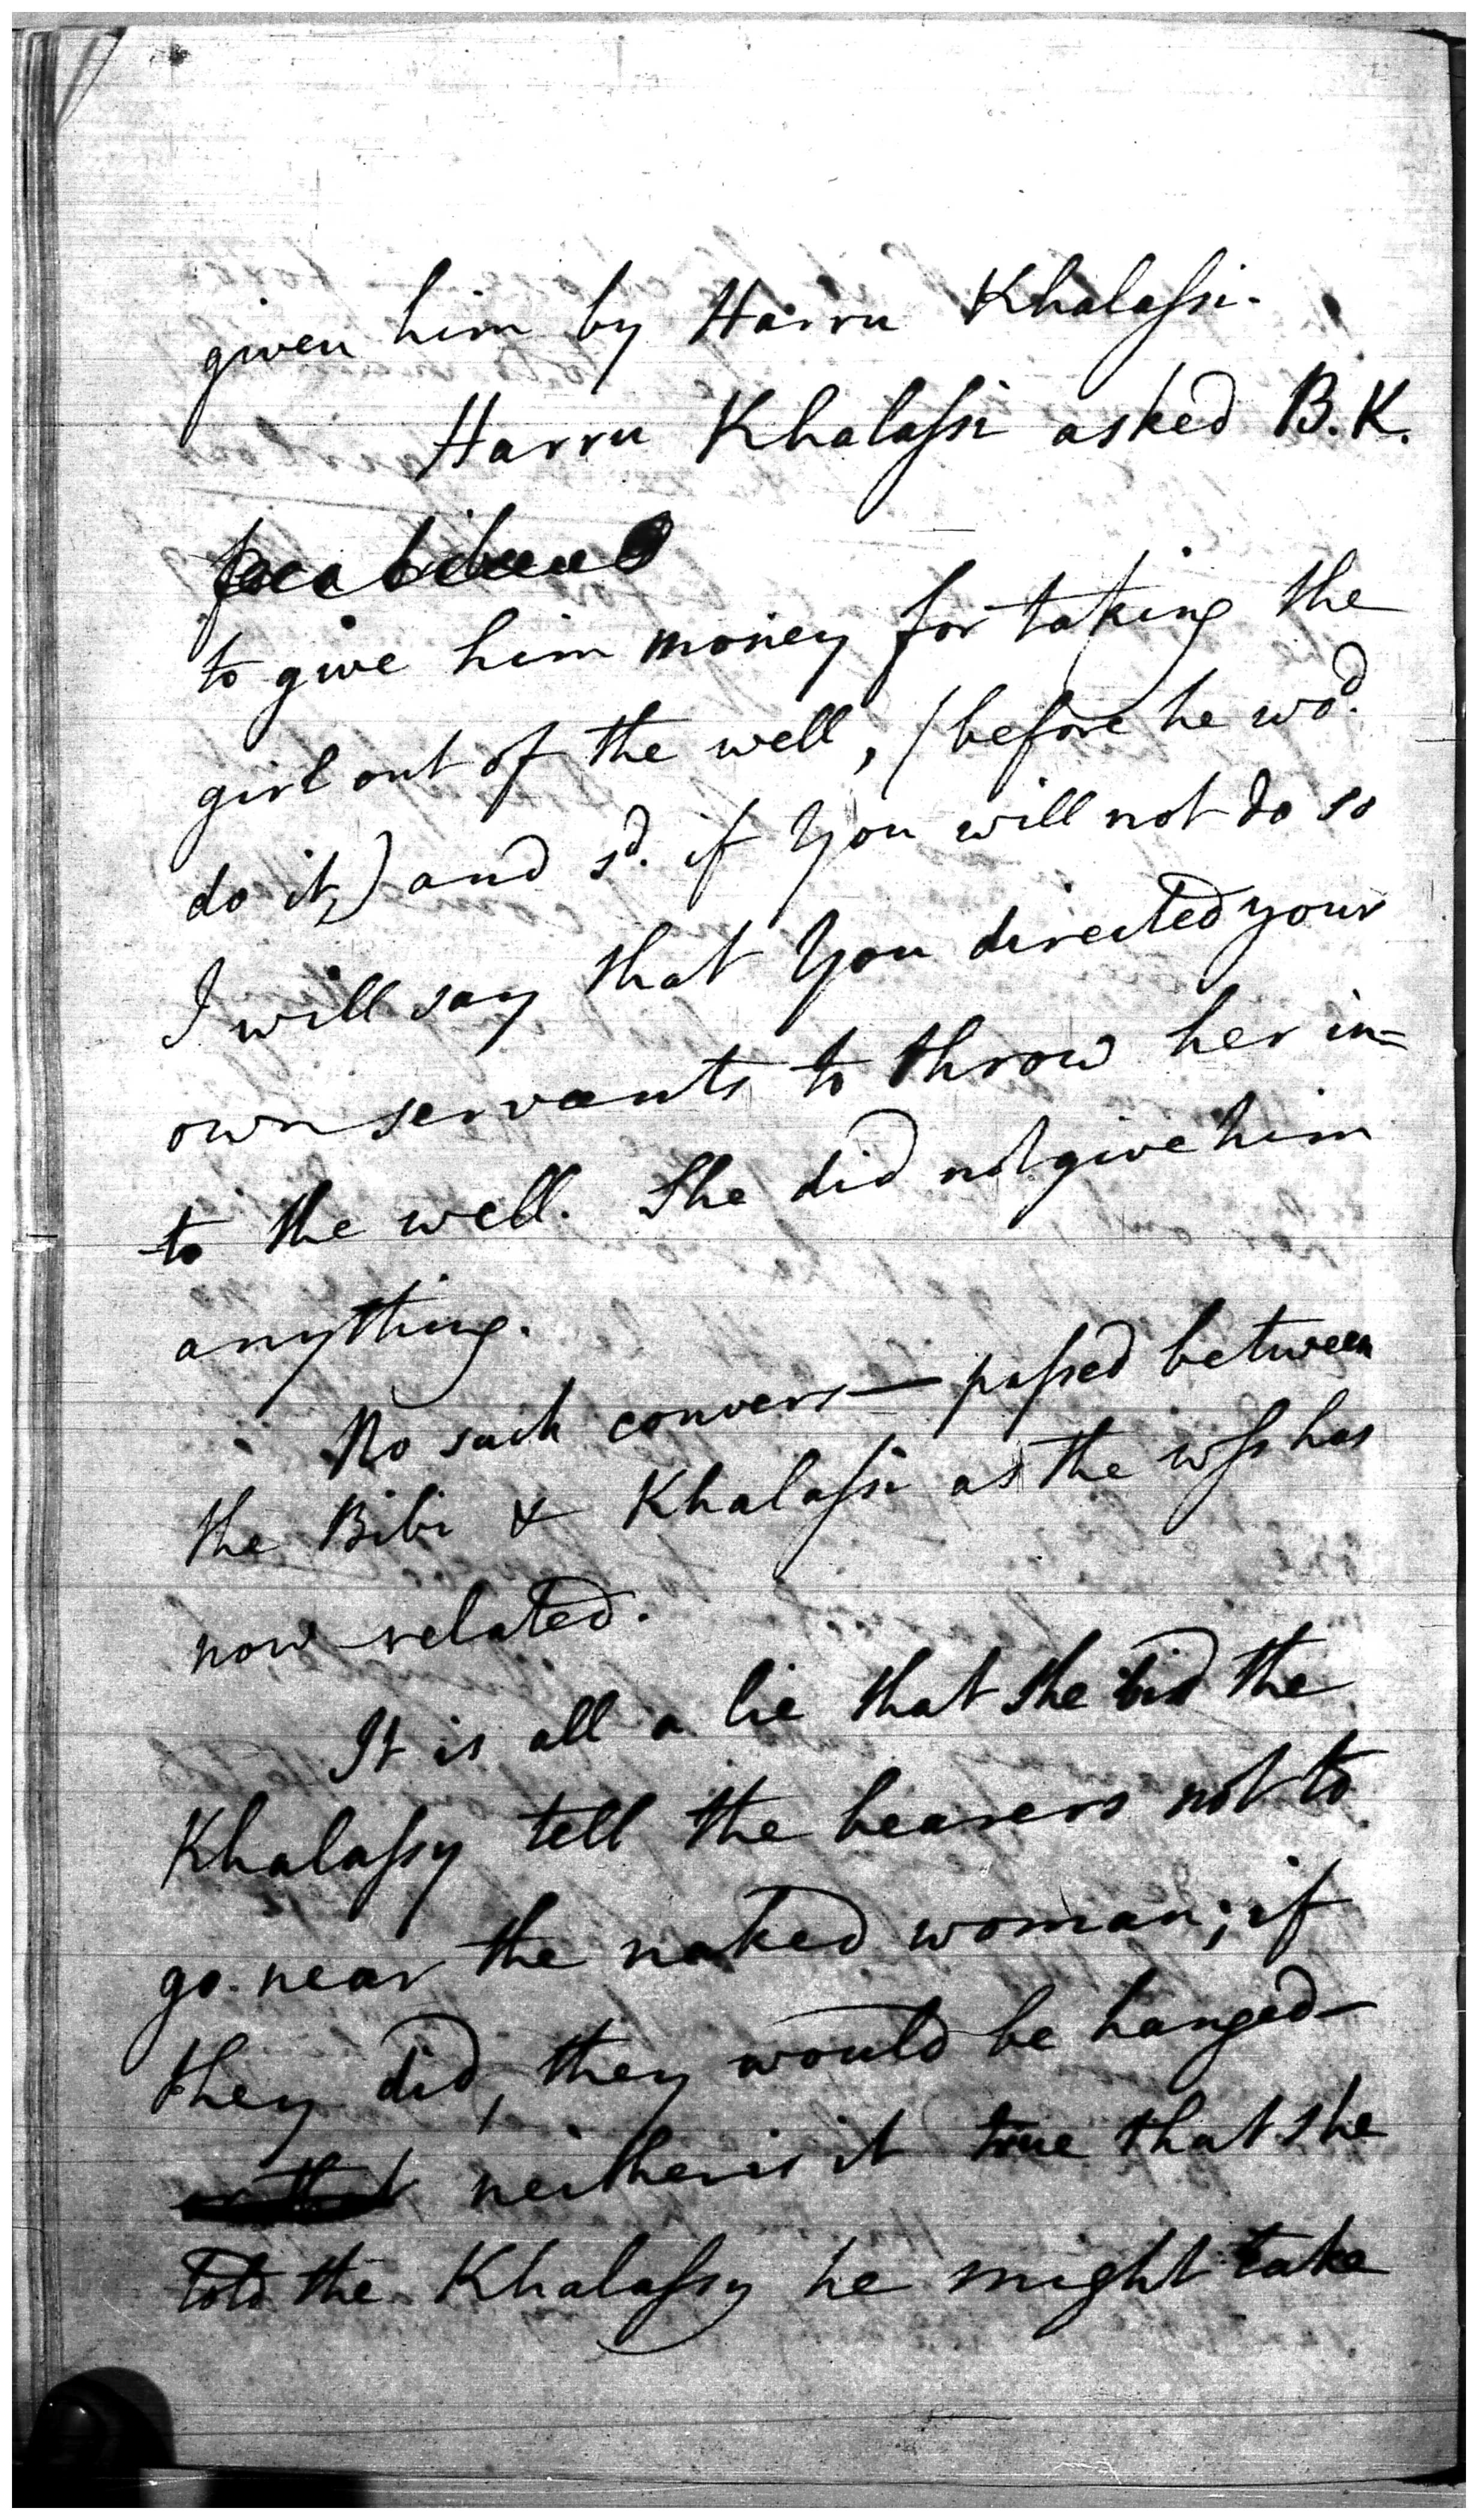 given him by Harru Khalaſsi.
Harru Khalaſsi asked B. K.
to give him money for taking the
girl out of the well, (before he wo.d
do it,) and s.d if You will not do so
I will say that You directed your
own servants to throw her in=
to the well. She did not give him
anything.
No such convers— paſsed between
the Bibi & Khalaſsi as the wſs has
now related.
It is all a lie that she bid the
Khalaſsy tell the bearers not to
go near the naked woman; if
they did, they would be hanged—
neither is it true that she
told the Khalaſsy he might take